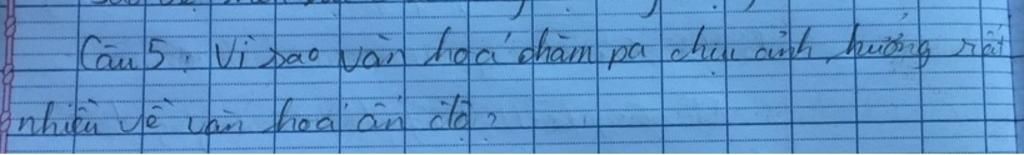 Câu 5: Vì sao văn hoá chăm pa chịu ảnh hưởng rất
nhiều về văn hoá ấn độ?